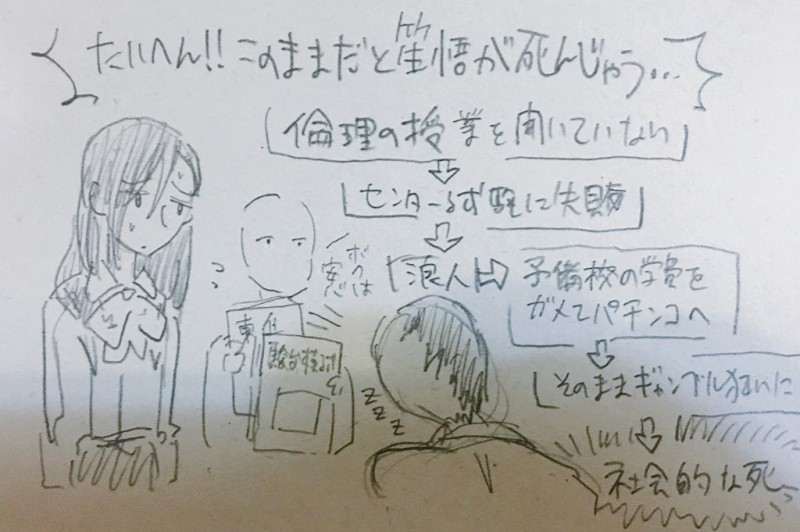 たいへん!! このままだと笙悟が死んじゃう…
倫理の授業を聞いていない
センターしず験に失敗
浪人
予備校の学費を
ガメてパチンコへ
そのままギャンブル狂いに
社会的な死
ボクは
窓
東
zzz